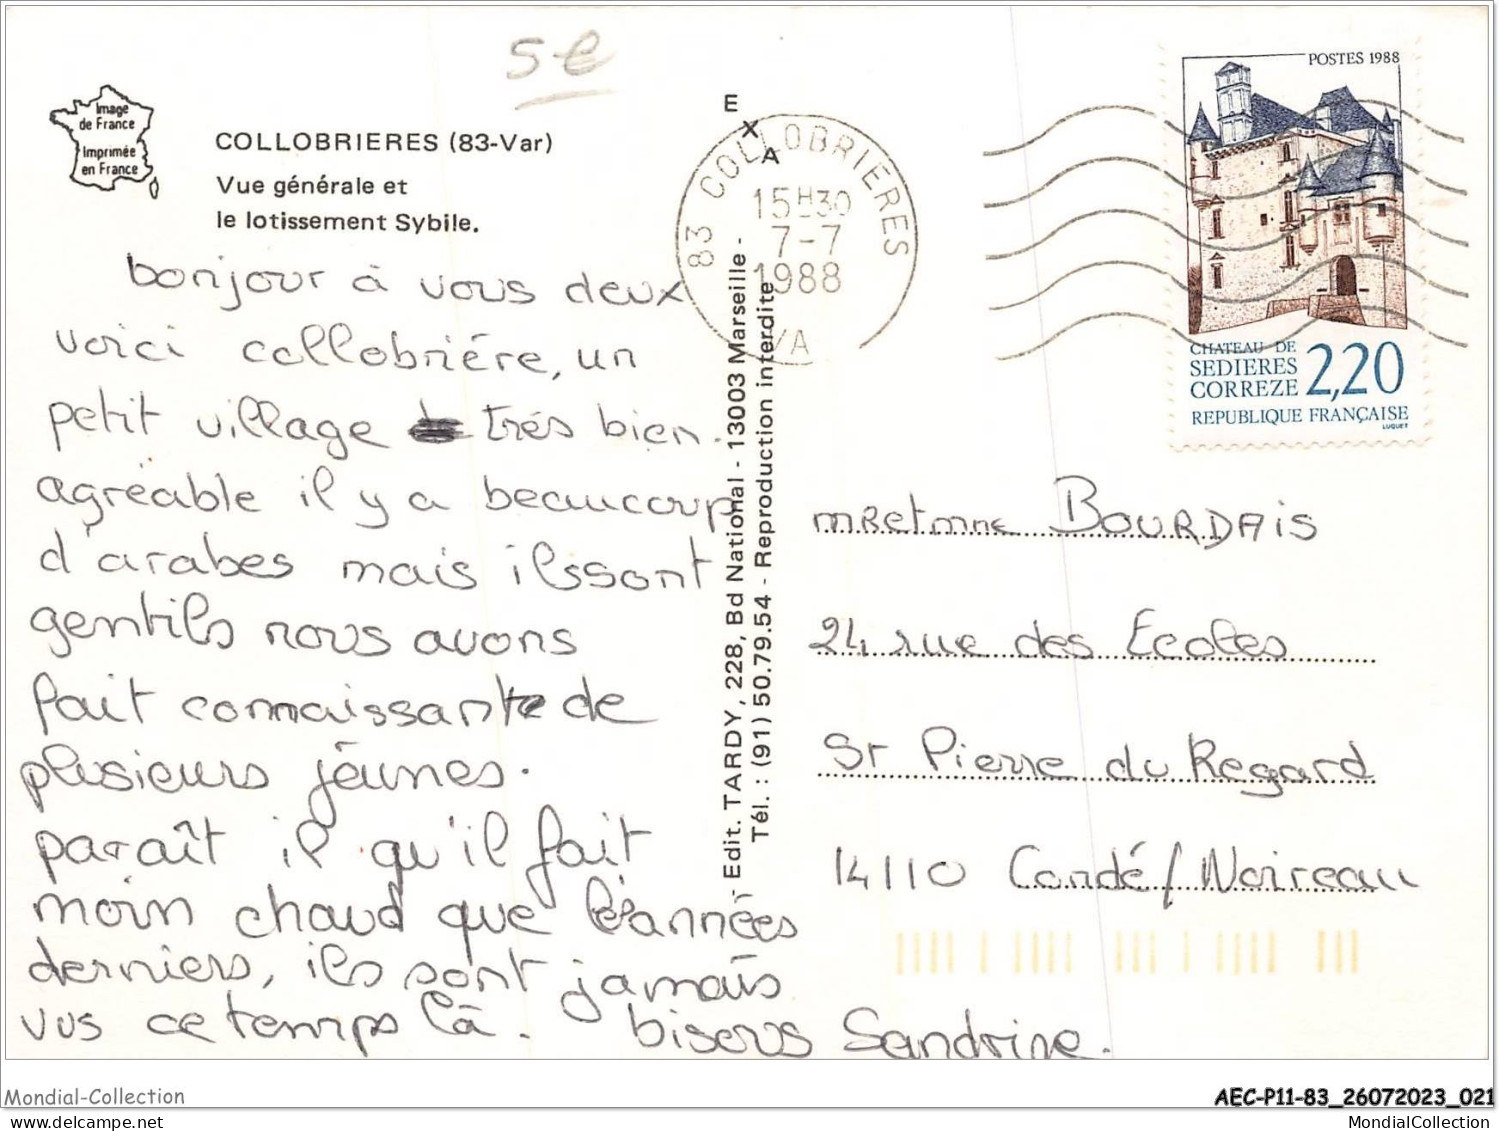 5 €
Image
de France
Imprimée
en France
COLLOBRIERES (83-Var)
Vue générale et
le lotissement Sybile.
bonjour à vous deux
voici collobriére, un
petit village trés bien.
agréable il y a beaucoup
d'arabes mais ilssont
gentils nous avons
fait connaissante de
plusieurs jéunes.
paraît il qu'il fait
moin chaud que années
derniers, ils sont jamais
vus ce temps là. bisous Sandrine.
E
X
A
Edit. TARDY, 228, Bd National - 13003 Marseille -
Tél. : (91) 50.79.54 - Reproduction interdite
83 COLLOBRIERES
15H30
7-7
1988
VA
POSTES 1988
CHATEAU DE
SEDIERES
CORREZE 2,20
REPUBLIQUE FRANÇAISE
LUQUET
mRetmme BOURDAis
24 rue des Ecoles
St Pierre du Regard
14110 Condé/Noireau
Mondial-Collection
AEC-P11-83_26072023_021
MondialCollection.com
MondialCollection